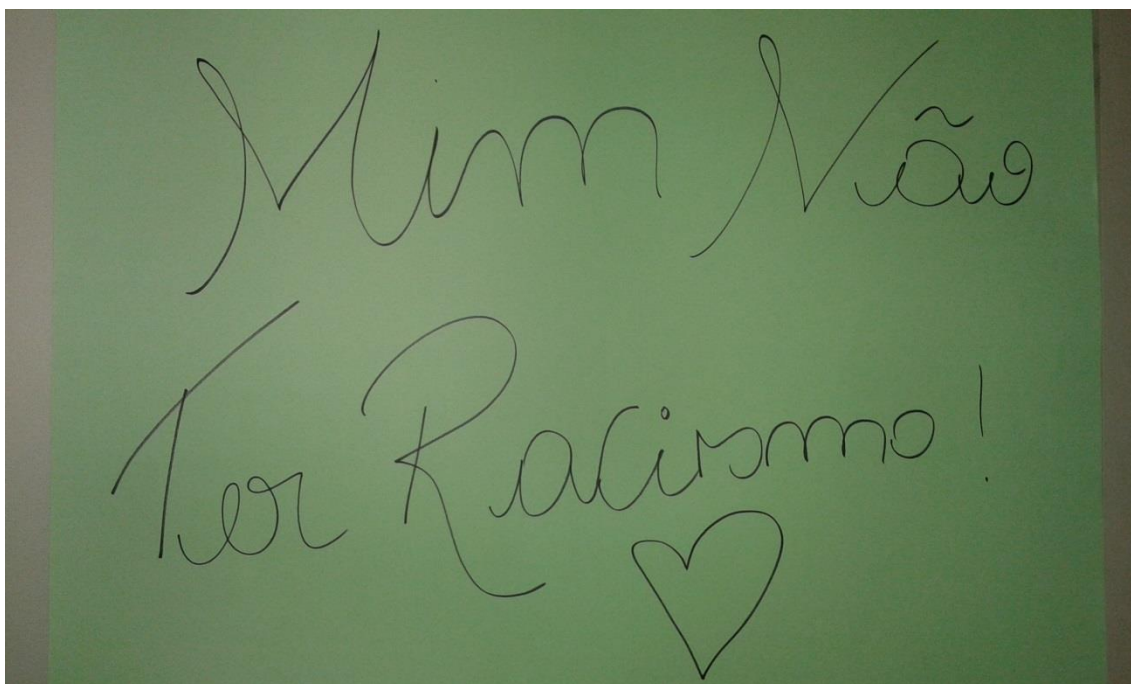 Mim Não
Ter Racismo!